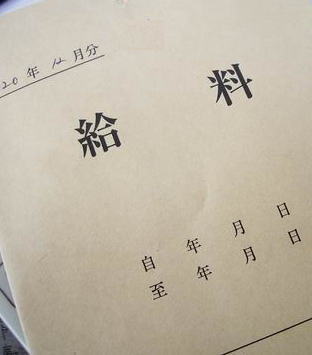 20年 12月分
給料
自 年 月 日
至 年 月 日